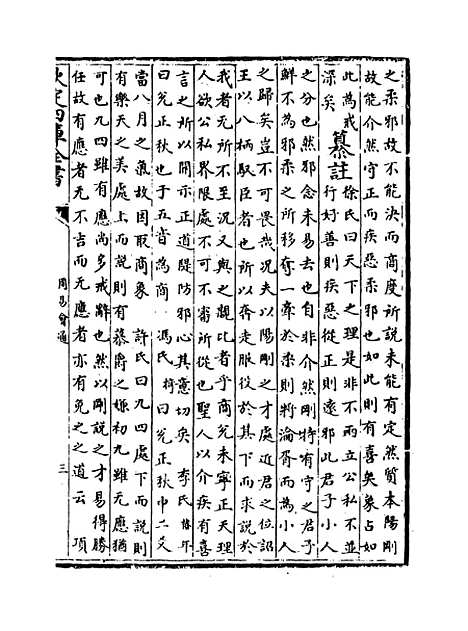 之柔邪故不能決而商度所說未能有定然質本陽剛
故能介然守正而疾惡柔邪也如此則有喜矣象占如
此為戒
深矣
纂註
徐氏曰天下之理是非不兩立公私不並
行好善則疾惡從正則遠邪此君子小人
之分也然邪念未易去也自非介然剛特有守之君子
鮮不為邪柔之所移奪一牽於柔則將淪胥而為小人
之歸矣豈不可畏哉况夫以陽剛之才處近君之位詔
王以八柄馭臣者也所以奔走服役於其下而求說於
我者无所不至况又與之親比者乎商兌未寧正天理
人欲公私界限處不可不審所從也聖人以介疾有喜
言之所以開示正道隄防邪心其意切矣 李氏椿年
曰兌正秋也于五音為商 馮氏椅曰兌正秋中二爻
當八月之氣故因取商象 許氏曰九四處下而說則
有樂天之美處上而說則有慕爵之嫌初九雖无應猶
可也九四雖有應尚多戒辭也然以剛說之才易得勝
任故有應者无不吉而无應者亦有免之之道云 項
欽定四庫全書
周易會通
三